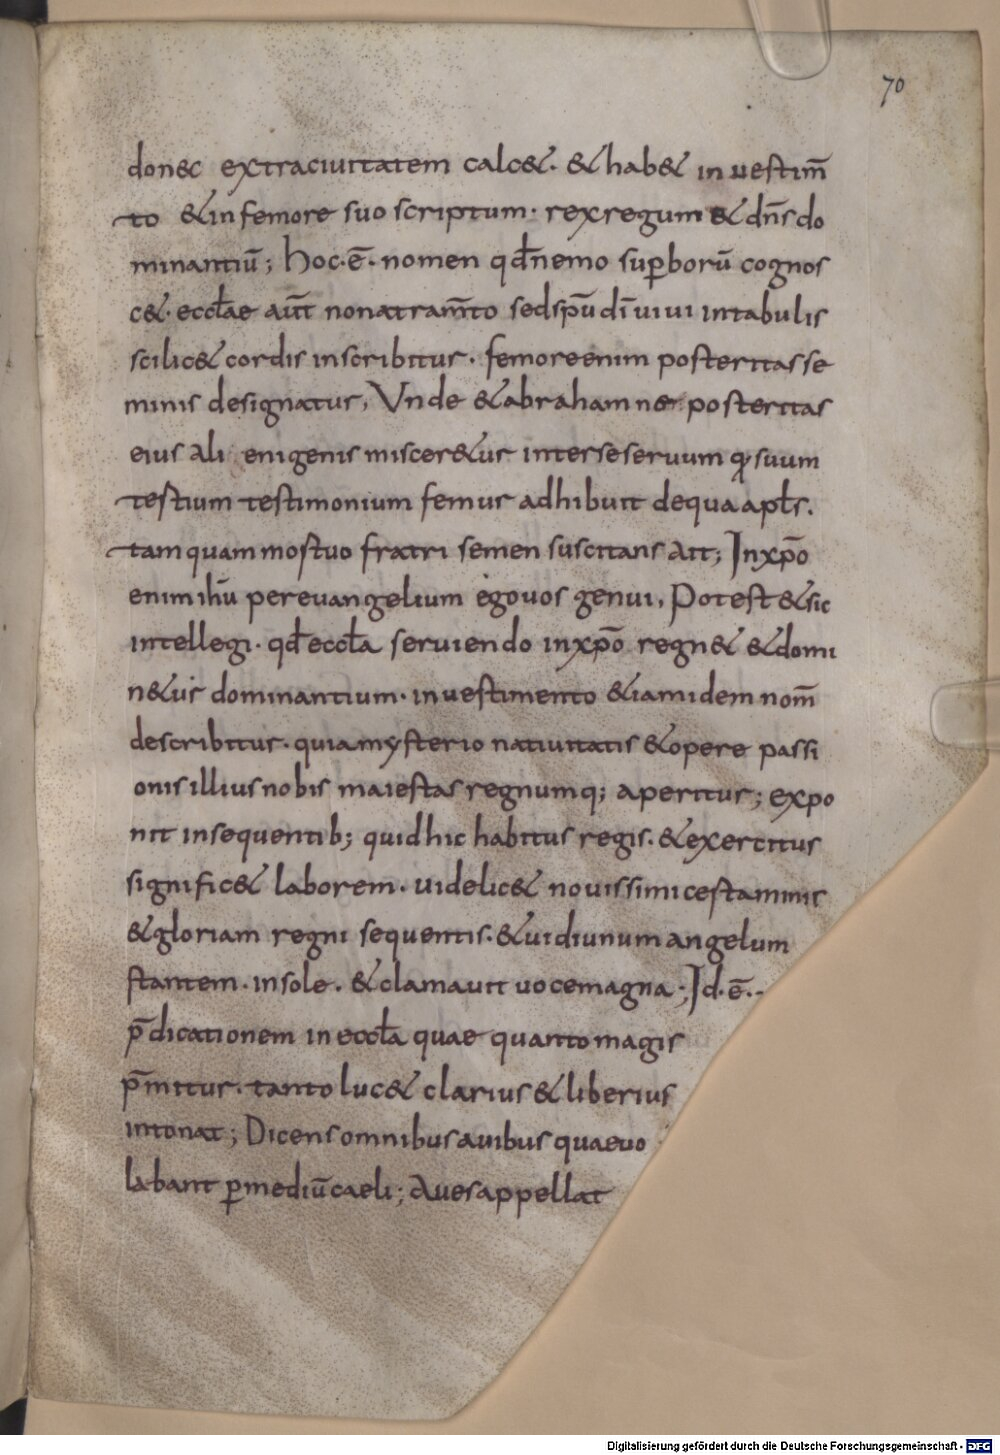 70
don&c extraciuitatem calc&. & hab& in uestim̄
to &in femore suo scriptum. rex regum & dn̄s do
minantiū; hoc.ē. nomen qđ nemo sup̱borū cognos
c&. eccƚae aūt non atram̄to sed sp̄u dī uiui in tabulis
scilic& cordis inscribitur. femore enim posteritas se
minis designatur, Vnde &abraham ne posteritas
eius ali enigenis miscer&ur inter se seruum q; suum
testium testimonium femur adhibuit de qua apƚs.
tam quam mostuo fratri semen suscitans ait; In xp̄o
enim ihū per euangelium ego uos genui, Potest & sic
intellegi. qđ eccƚa seruiendo in xp̄o regn& & domi
n&ur dominantium. in uestimento &iam idem nom̄
describitur. quia mysterio natiuitatis & opere passi
onis illius nobis maiestas regnumq; aperitur; expo
nit in sequentib; quid hic habitus regis. & exercitus
signific& laborem. uidelic& nouissimi cestaminis
& gloriam regni sequentis. & uidi unum angelum
stantem. in sole. & clamauit uoce magna; Id.ē.
p̄dicationem in eccƚa quae quanto magis
p̄mitur. tanto luc& clarius & liberius
intonat; Dicens omnibus auibus quae uo
labant p̱ mediū caeli; Aues appellat
Digitalisierung gefördert durch die Deutsche Forschungsgemeinschaft - DFG